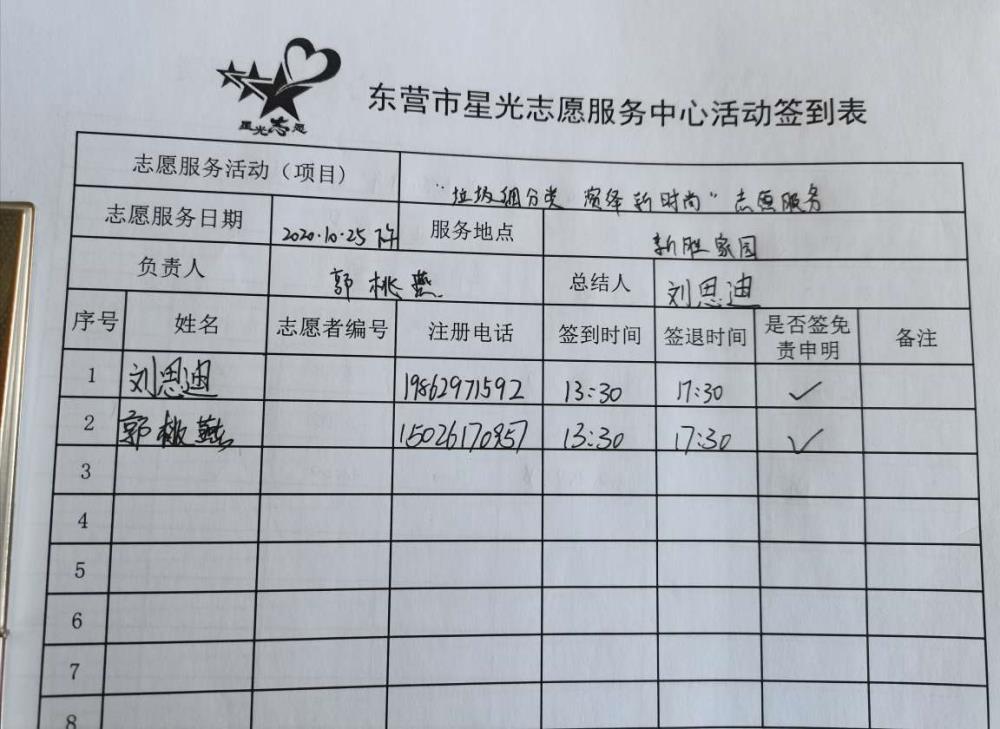 星光志愿
东营市星光志愿服务中心活动签到表
志愿服务活动（项目） “垃圾细分类 演绎新时尚”志愿服务
志愿服务日期 2020.10.25 下午 服务地点 新胜家园
负责人 郭桃燕 总结人 刘思迪
序号 姓名 志愿者编号 注册电话 签到时间 签退时间 是否签免责申明 备注
1 刘思迪 19862971592 13:30 17:30 ✓
2 郭桃燕 15026170857 13:30 17:30 ✓
3
4
5
6
7
8